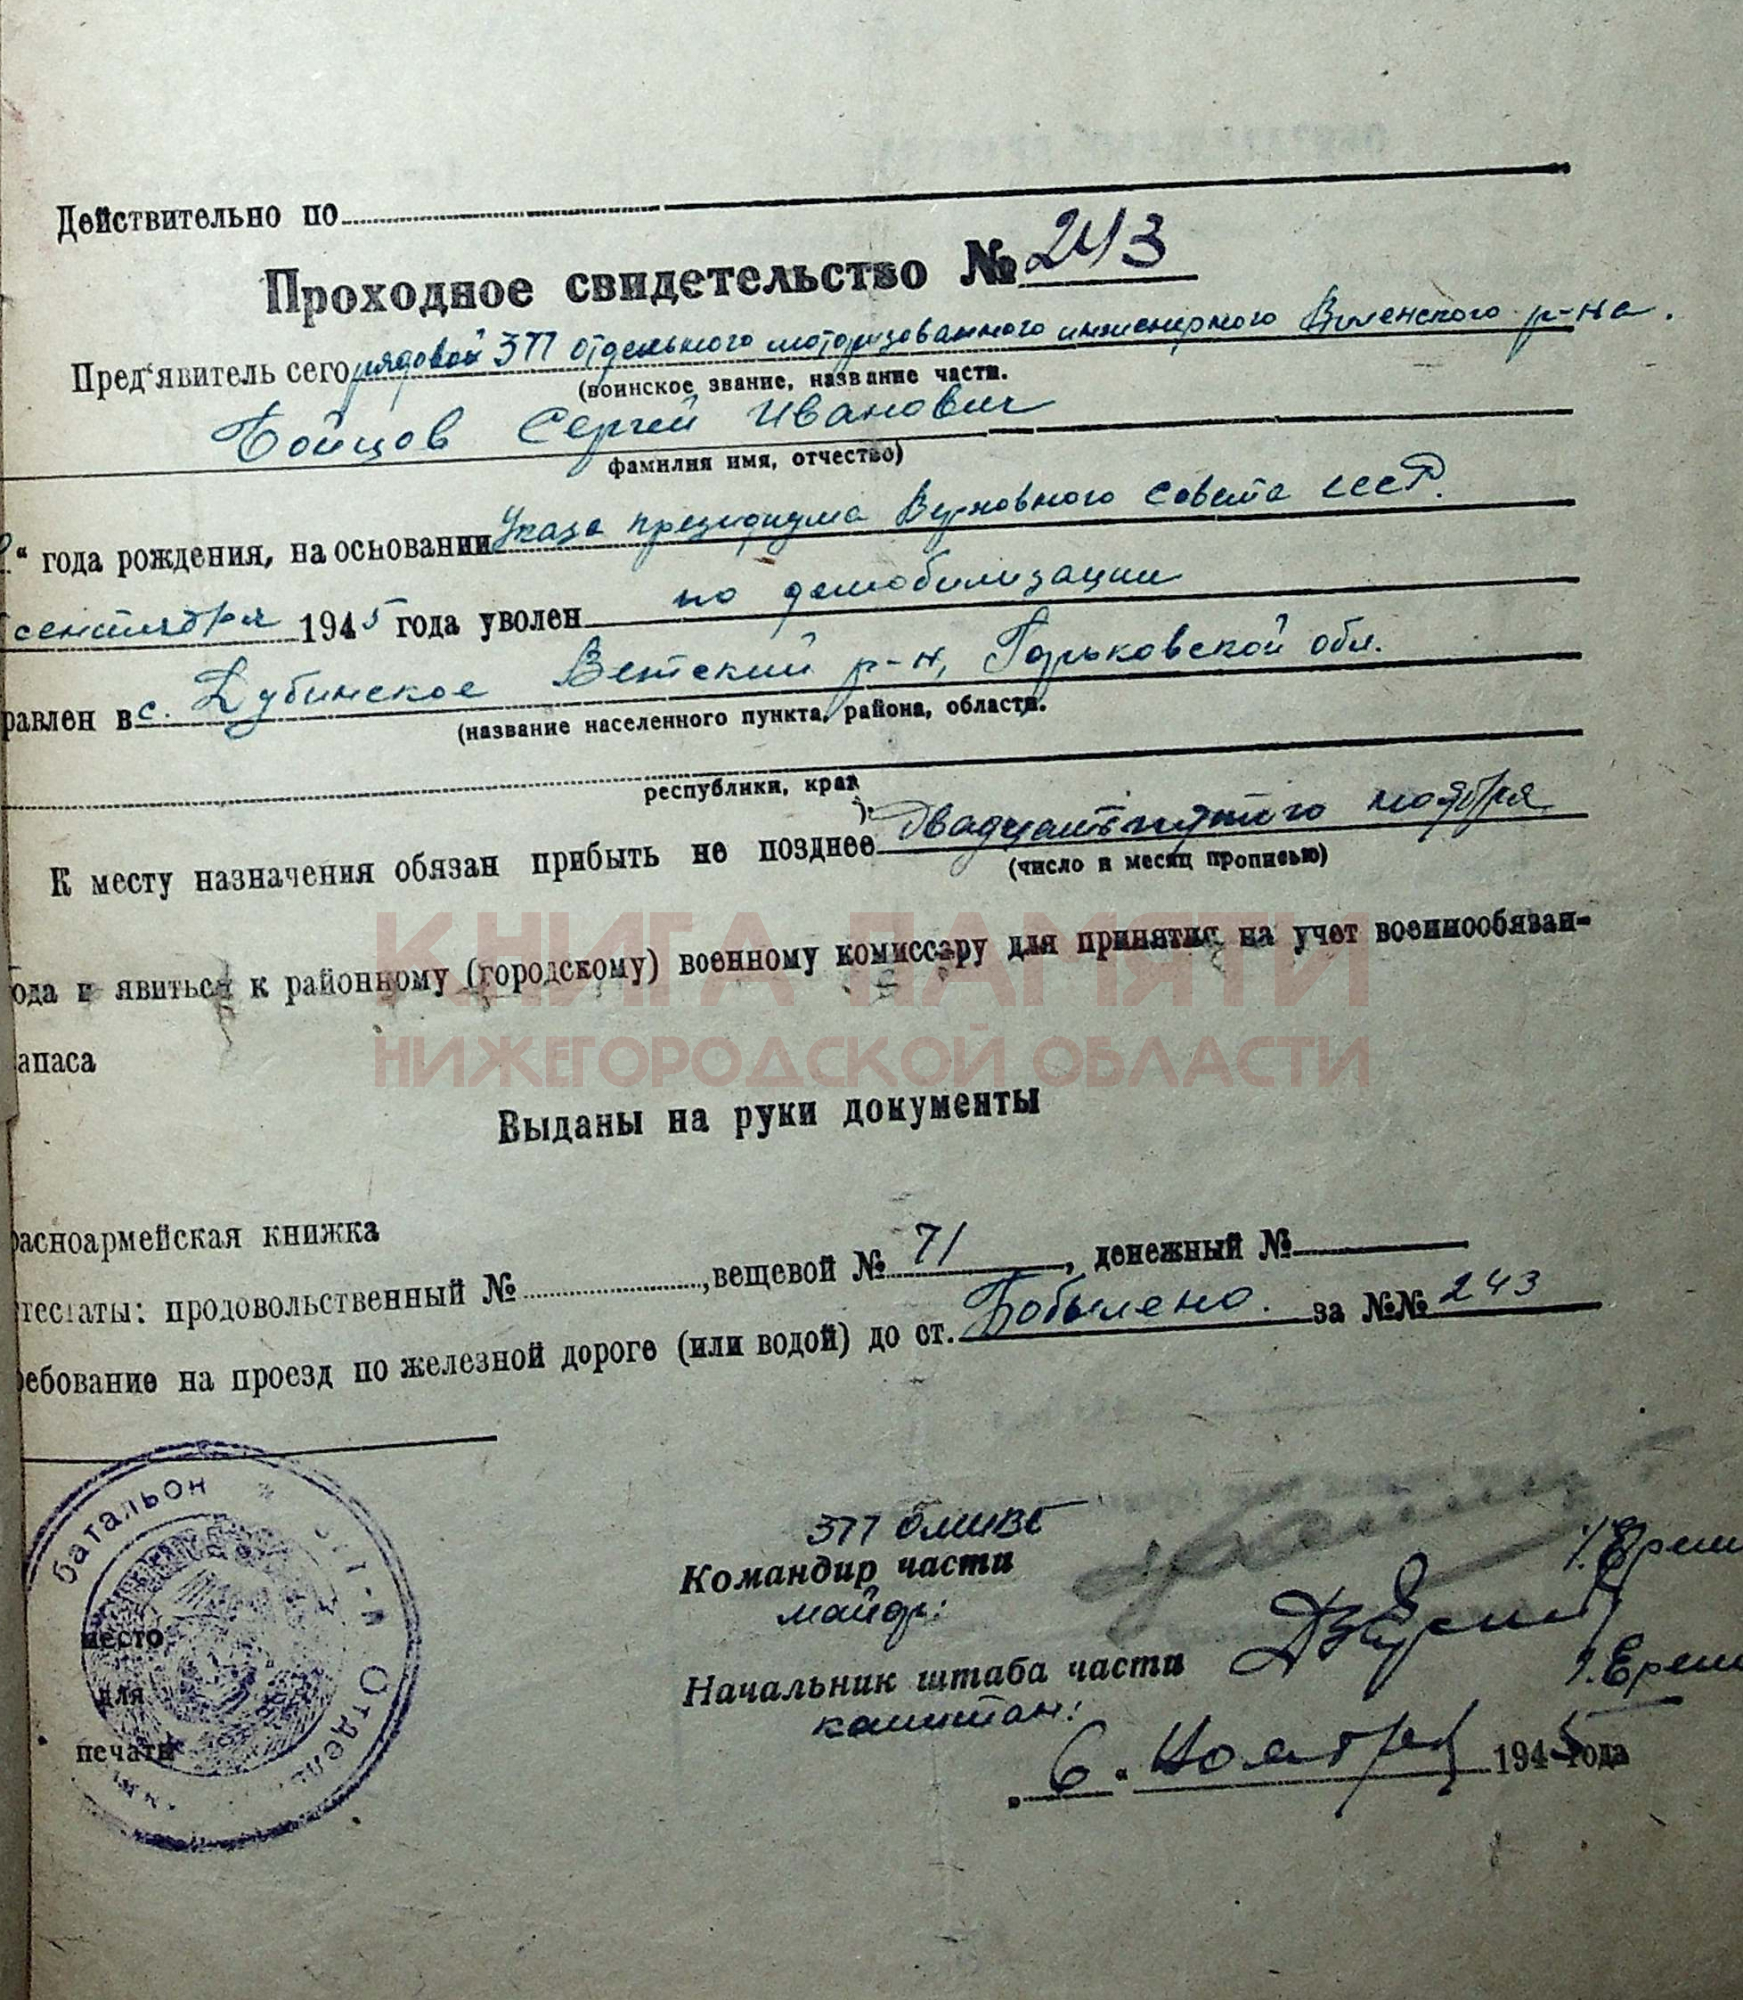 Действительно по
Проходное свидетельство № 243
Пред'явитель сего рядовой 377 отдельного моторизованного инженерного Виленского р-на.
(воинское звание, название части.
Бойцов Сергей Иванович
фамилия имя, отчество)
“ года рождения, на основании Указа президиума Верховного Совета СССР.
сентября 1945 года уволен по демобилизации
равлен в с. Дубинское Ветский р-н, Горьковской обл.
(название населенного пункта, района, области.
республики, края
К месту назначения обязан прибыть не позднее двадцатьпятого ноября
(число и месяц прописью)
КНИГА ПАМЯТИ
ода и явиться к районному (городскому) военному комиссару для принятия на учет военнообязан-
апаса
НИЖЕГОРОДСКОЙ ОБЛАСТИ
Выданы на руки документы
расноармейская книжка
тестаты: продовольственный № , вещевой № 71 , денежный №
ребование на проезд по железной дороге (или водой) до ст. Бобылено. за №№ 243
батальон
Отдель
место
для
печати
377 омивб
Командир части
майор:
Начальник штаба части
капитан:
„ 6 “ Ноября 1945 года